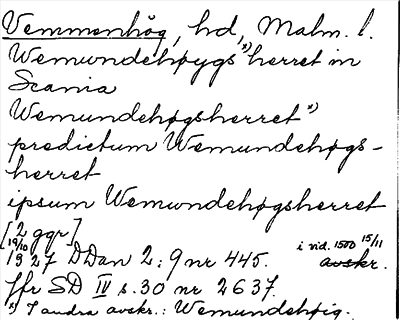 Vemmenhög, hd, Malm. l.
Wemundehøygs*)herret in
Scania
Wemundehøgsherret*)
predictum Wemundehøgs-
herret
ipsum Wemundehøgsherret
[2 ggr]
19/10 1927 DDan 2:9 nr 445. i vid. 1500 15/11 avskr.
Jfr SD IV s. 30 nr 2637.
*) I andra avskr.: Wemundehøig.